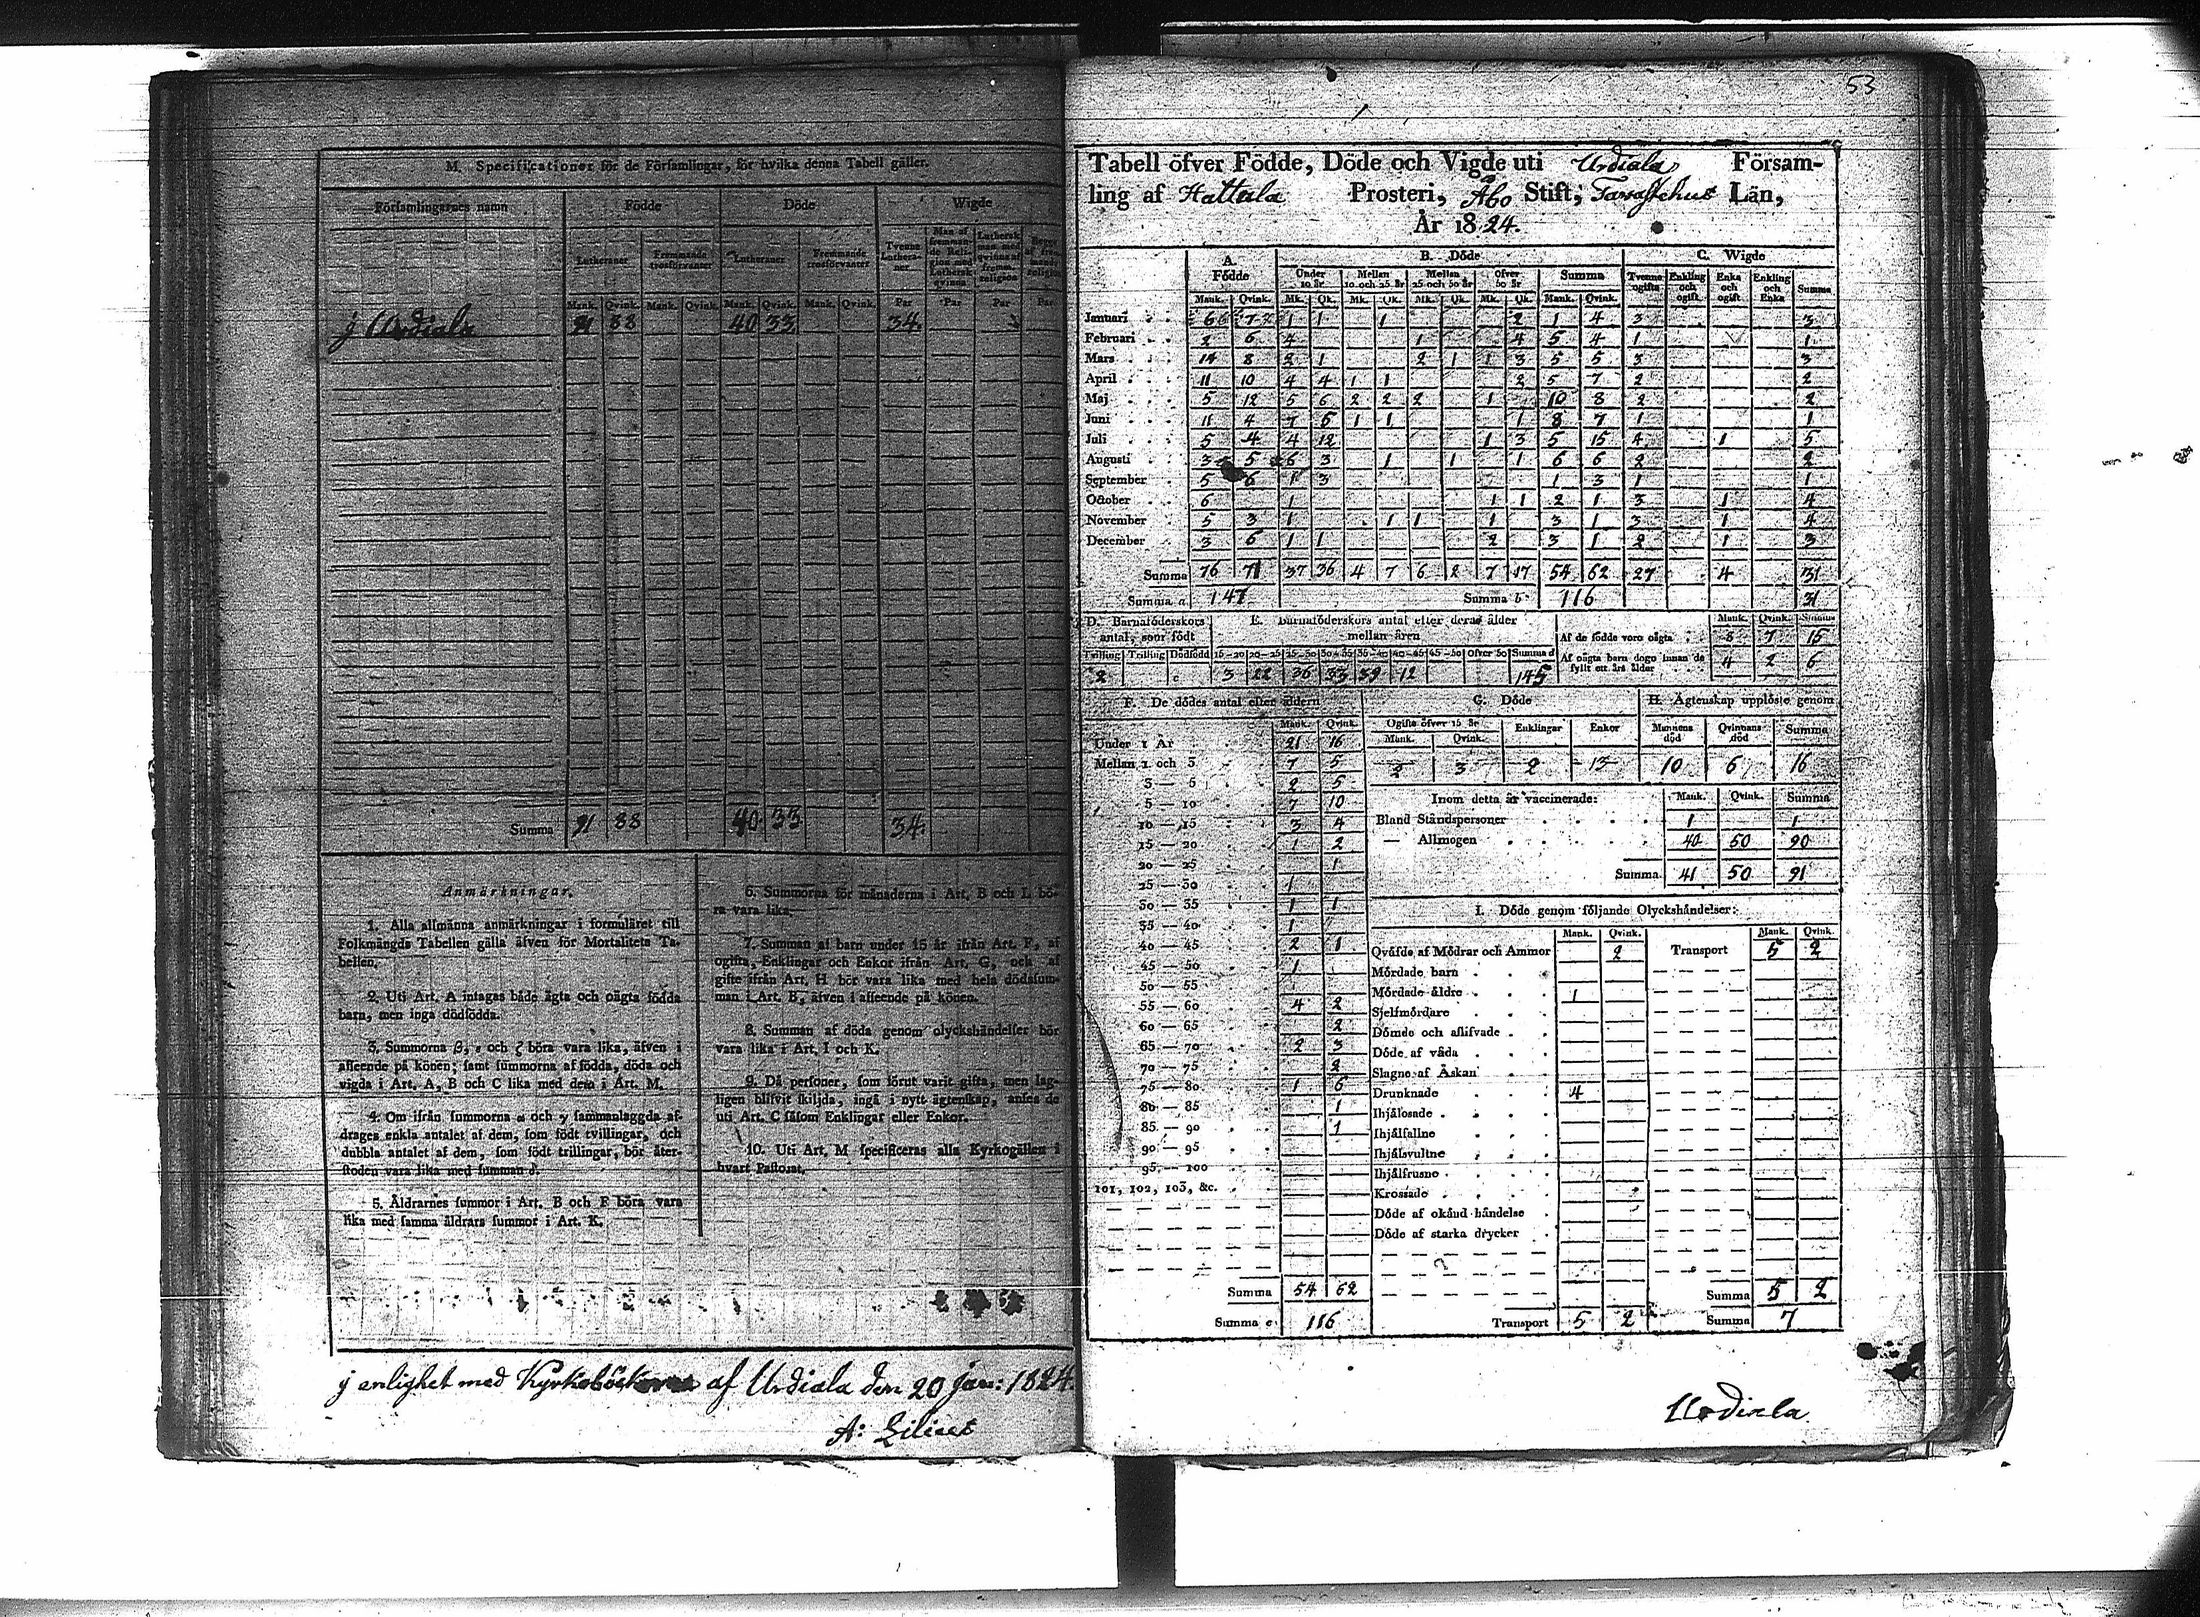 M. Specificationer för de Församlingar, för hvilka denna Tabell gäller.
Församlingarnes namn Födde Döde Wigde
Lutheraner Fremmande trosförvanter Lutheraner Fremmande trosförvanter Tvenne Lutheraner Man af fremmande Religion med Luthersk qvinna Luthersk man med qvinna af fremm. religion
Mank. Qvink. Mank. Qvink. Mank. Qvink. Mank. Qvink. Par Par Par Par
j Urdiala 91 88 40 33 34
Summa 91 88 40 33 34
Anmärkningar.
1. Alla allmänna anmärkningar i formuläret till
Folkmängds Tabellen gälla äfven för Mortalitets Ta-
bellen.
2. Uti Art. A intagas både ägta och oägta födda
barn, men inga dödfödda.
3. Summorna β, ε och ζ böra vara lika, äfven i
afseende på könen; samt summorna af födda, döda och
vigda i Art. A, B och C lika med dem i Art. M.
4. Om ifrån summorna α och γ sammanlaggda af-
drages enkla antalet af dem, som födt tvillingar, och
dubbla antalet af dem, som födt trillingar, bör åter-
stoden vara lika med summan δ.
5. Åldrarnes summor i Art. B och F böra vara
lika med samma åldrars summor i Art. K.
6. Summorna för månaderna i Art. B och L bö-
ra vara lika.
7. Summan af barn under 15 år ifrån Art. F, af
ogifta, Enklingar och Enkor ifrån Art. G, och af
gifte ifrån Art. H bör vara lika med hela dödssum-
man i Art. B, äfven i afseende på könen.
8. Summan af döda genom olyckshändelser bör
vara lika i Art. I och K.
9. Då personer, som förut varit gifta, men lag-
ligen blifvit skiljda, ingå i nytt ägtenskap, anses de
uti Art. C såsom Enklingar eller Enkor.
10. Uti Art. M specificeras alla Kyrkogällen i
hvart Pastorat.
j enlighet med Kyrkoböckerna af Urdiala den 20 Jan: 1824.
53
Tabell öfver Födde, Döde och Vigde uti Urdiala Försam-
ling af Hattula Prosteri, Åbo Stift, Tavastehus Län,
År 1824.
A. Födde B. Döde C. Wigde
Under 10 år Mellan 10 och 25 år Mellan 25 och 50 år Öfver 50 år Summa Tvenne ogifta Enkling och ogift Enka och ogift Enkling och Enka Summa
Mank. Qvink. Mk. Qk. Mk. Qk. Mk. Qk. Mk. Qk. Mank. Qvink.
Januari 6 7 1 1 1 2 1 4 3 3
Februari 2 6 4 1 4 5 4 1 1
Mars 14 8 2 1 2 1 1 3 5 5 3 3
April 11 10 4 4 1 1 2 5 7 2 2
Maj 5 12 5 6 2 2 2 1 10 8 2 2
Juni 11 4 7 5 1 1 1 8 7 1 1
Juli 5 4 4 12 1 3 5 15 4 1 5
Augusti 3 5 6 3 1 1 1 6 6 2 2
September 5 6 1 3 1 3 1 1
October 6 1 1 1 2 1 3 1 4
November 5 3 1 1 1 1 3 1 3 1 4
December 3 6 1 1 2 3 1 2 1 3
Summa 76 71 37 36 4 7 6 2 7 17 54 62 27 4 31
Summa a 147 Summa b 116 31
D. Barnaföderskors antal, som födt E. Barnaföderskors antal efter deras ålder mellan åren
Tvilling Trilling Dödfödd 15-20 20-25 25-30 30-35 35-40 40-45 45-50 Öfver 50 Summa d
2 3 22 36 33 39 12 145
Mank. Qvink. Summa
Af de födde voro oägta 8 7 15
Af oägta barn dogo innan de fyllt ett års ålder 4 2 6
F. De dödes antal efter åldern
Mank. Qvink.
Under 1 År 21 16
Mellan 1 och 3 7 5
3 — 5 2 5
5 — 10 7 10
10 — 15 3 4
15 — 20 1 2
20 — 25 1
25 — 30 1
30 — 35 1 1
35 — 40 1
40 — 45 2 1
45 — 50 1
50 — 55
55 — 60 4 2
60 — 65 2
65 — 70 2 3
70 — 75 2
75 — 80 1 6
80 — 85 1
85 — 90 1
90 — 95
95 — 100
101, 102, 103, &c.
Summa 54 62
Summa c 116
G. Döde
Ogifte öfver 15 år Enklingar Enkor
Mank. Qvink.
2 3 2 13
H. Ägtenskap upplöste genom
Mannens död Qvinnans död Summa
10 6 16
Inom detta år vaccinerade: Mank. Qvink. Summa
Bland Ståndspersoner 1 1
— Allmogen 40 50 90
Summa 41 50 91
I. Döde genom följande Olyckshändelser:
Mank. Qvink. Mank. Qvink.
Qväfde af Mödrar och Ammor 2 Transport 5 2
Mördade barn
Mördade äldre 1
Sjelfmördare
Dömde och aflifvade
Döde af våda
Slagne af Åskan
Drunknade 4
Ihjälosade
Ihjälfallne
Ihjälsvultne
Ihjälfrusne
Krossade
Döde af okänd händelse
Döde af starka drycker
Summa 5 2
Transport 5 2 Summa 7
Urdiala